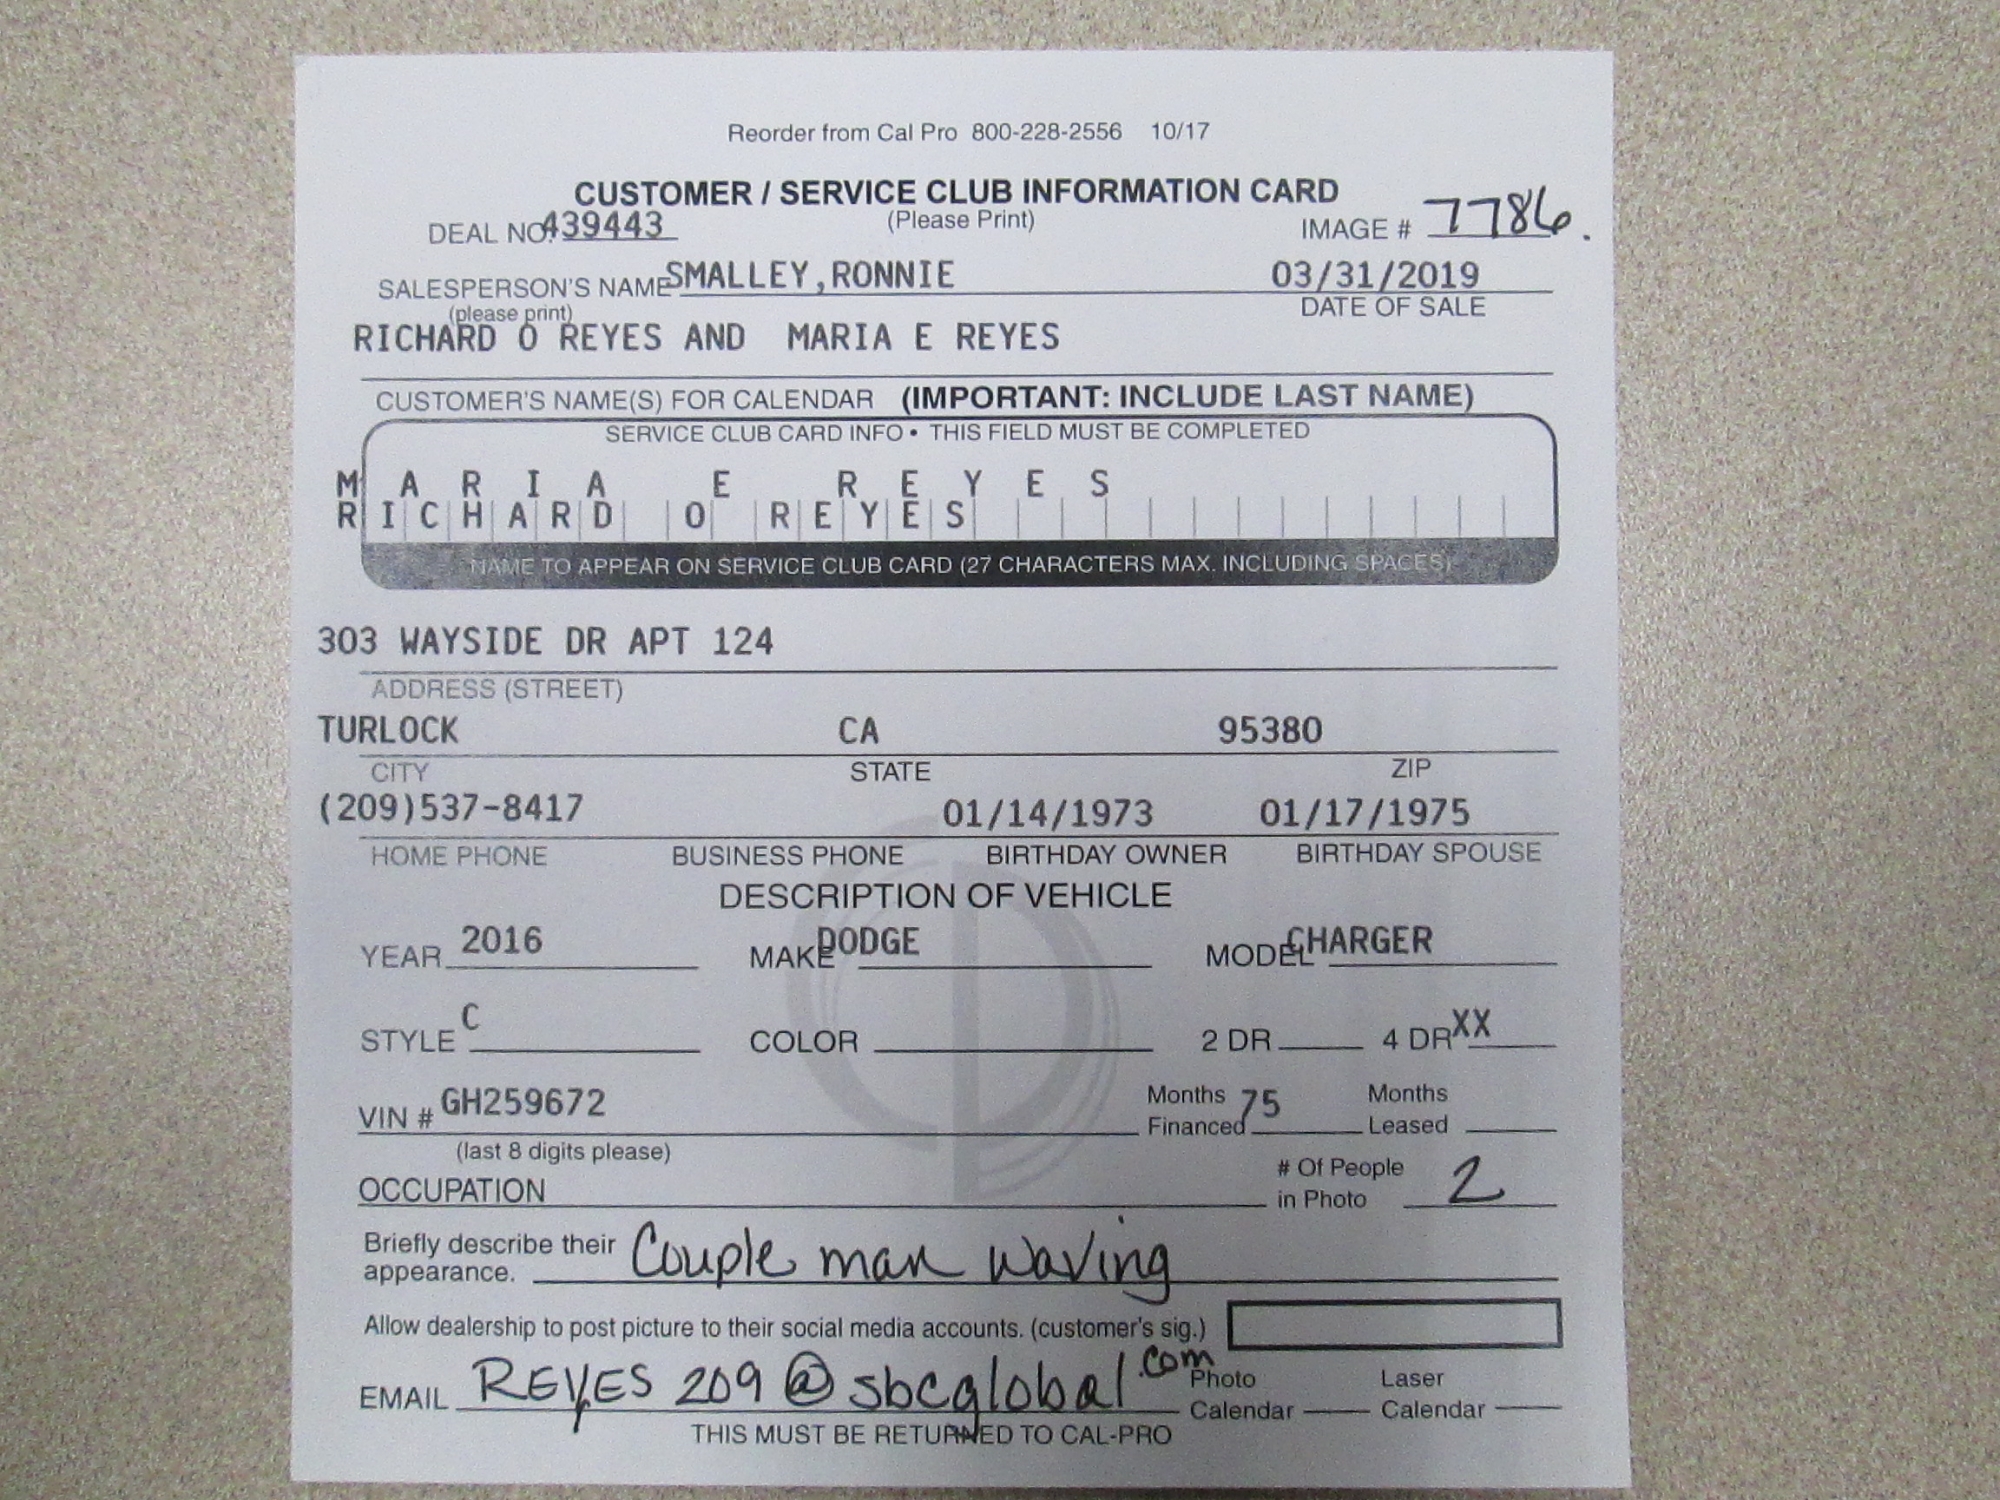 Reorder from Cal Pro 800-228-2556 10/17
CUSTOMER / SERVICE CLUB INFORMATION CARD
DEAL NO. 439443 (Please Print) IMAGE # 7786.
SALESPERSON'S NAME SMALLEY,RONNIE 03/31/2019
(please print) DATE OF SALE
RICHARD O REYES AND MARIA E REYES
CUSTOMER'S NAME(S) FOR CALENDAR (IMPORTANT: INCLUDE LAST NAME)
SERVICE CLUB CARD INFO • THIS FIELD MUST BE COMPLETED
MARIA E REYES
RICHARD O REYES
NAME TO APPEAR ON SERVICE CLUB CARD (27 CHARACTERS MAX. INCLUDING SPACES)
303 WAYSIDE DR APT 124
ADDRESS (STREET)
TURLOCK CA 95380
CITY STATE ZIP
(209)537-8417 01/14/1973 01/17/1975
HOME PHONE BUSINESS PHONE BIRTHDAY OWNER BIRTHDAY SPOUSE
DESCRIPTION OF VEHICLE
YEAR 2016 MAKE DODGE MODEL CHARGER
STYLE C COLOR 2 DR 4 DR XX
VIN # GH259672 Months Financed 75 Months Leased
(last 8 digits please)
OCCUPATION # Of People in Photo 2
Briefly describe their appearance. Couple man waving
Allow dealership to post picture to their social media accounts. (customer's sig.)
EMAIL REYES 209@sbcglobal.com Photo Calendar Laser Calendar
THIS MUST BE RETURNED TO CAL-PRO